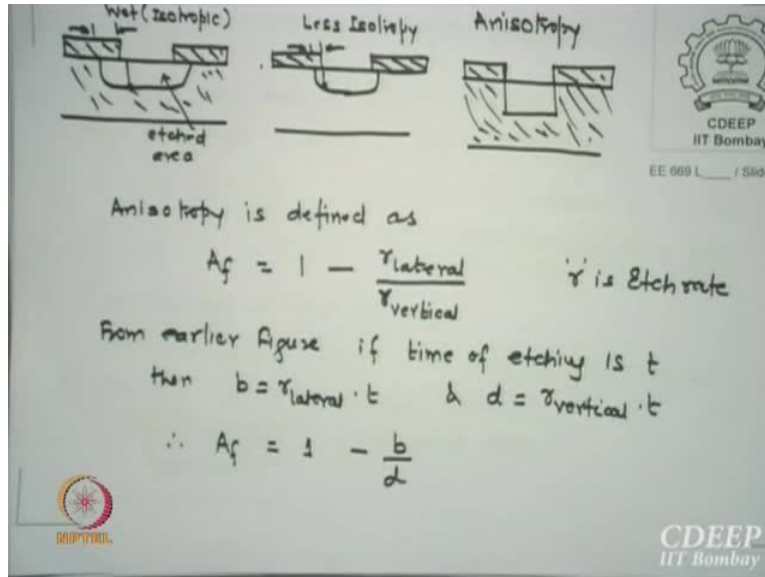 Wet (Isotropic)
Less Isotropy
Anisotropy
etched
area
CDEEP
IIT Bombay
EE 669 L____ / Slid
Anisotropy is defined as
Af = 1 − rlateral / rvertical
'r' is Etch rate
From earlier figure if time of etching is t
then b = rlateral · t & d = rvertical · t
∴ Af = 1 − b/d
NPTEL
CDEEP
IIT Bombay